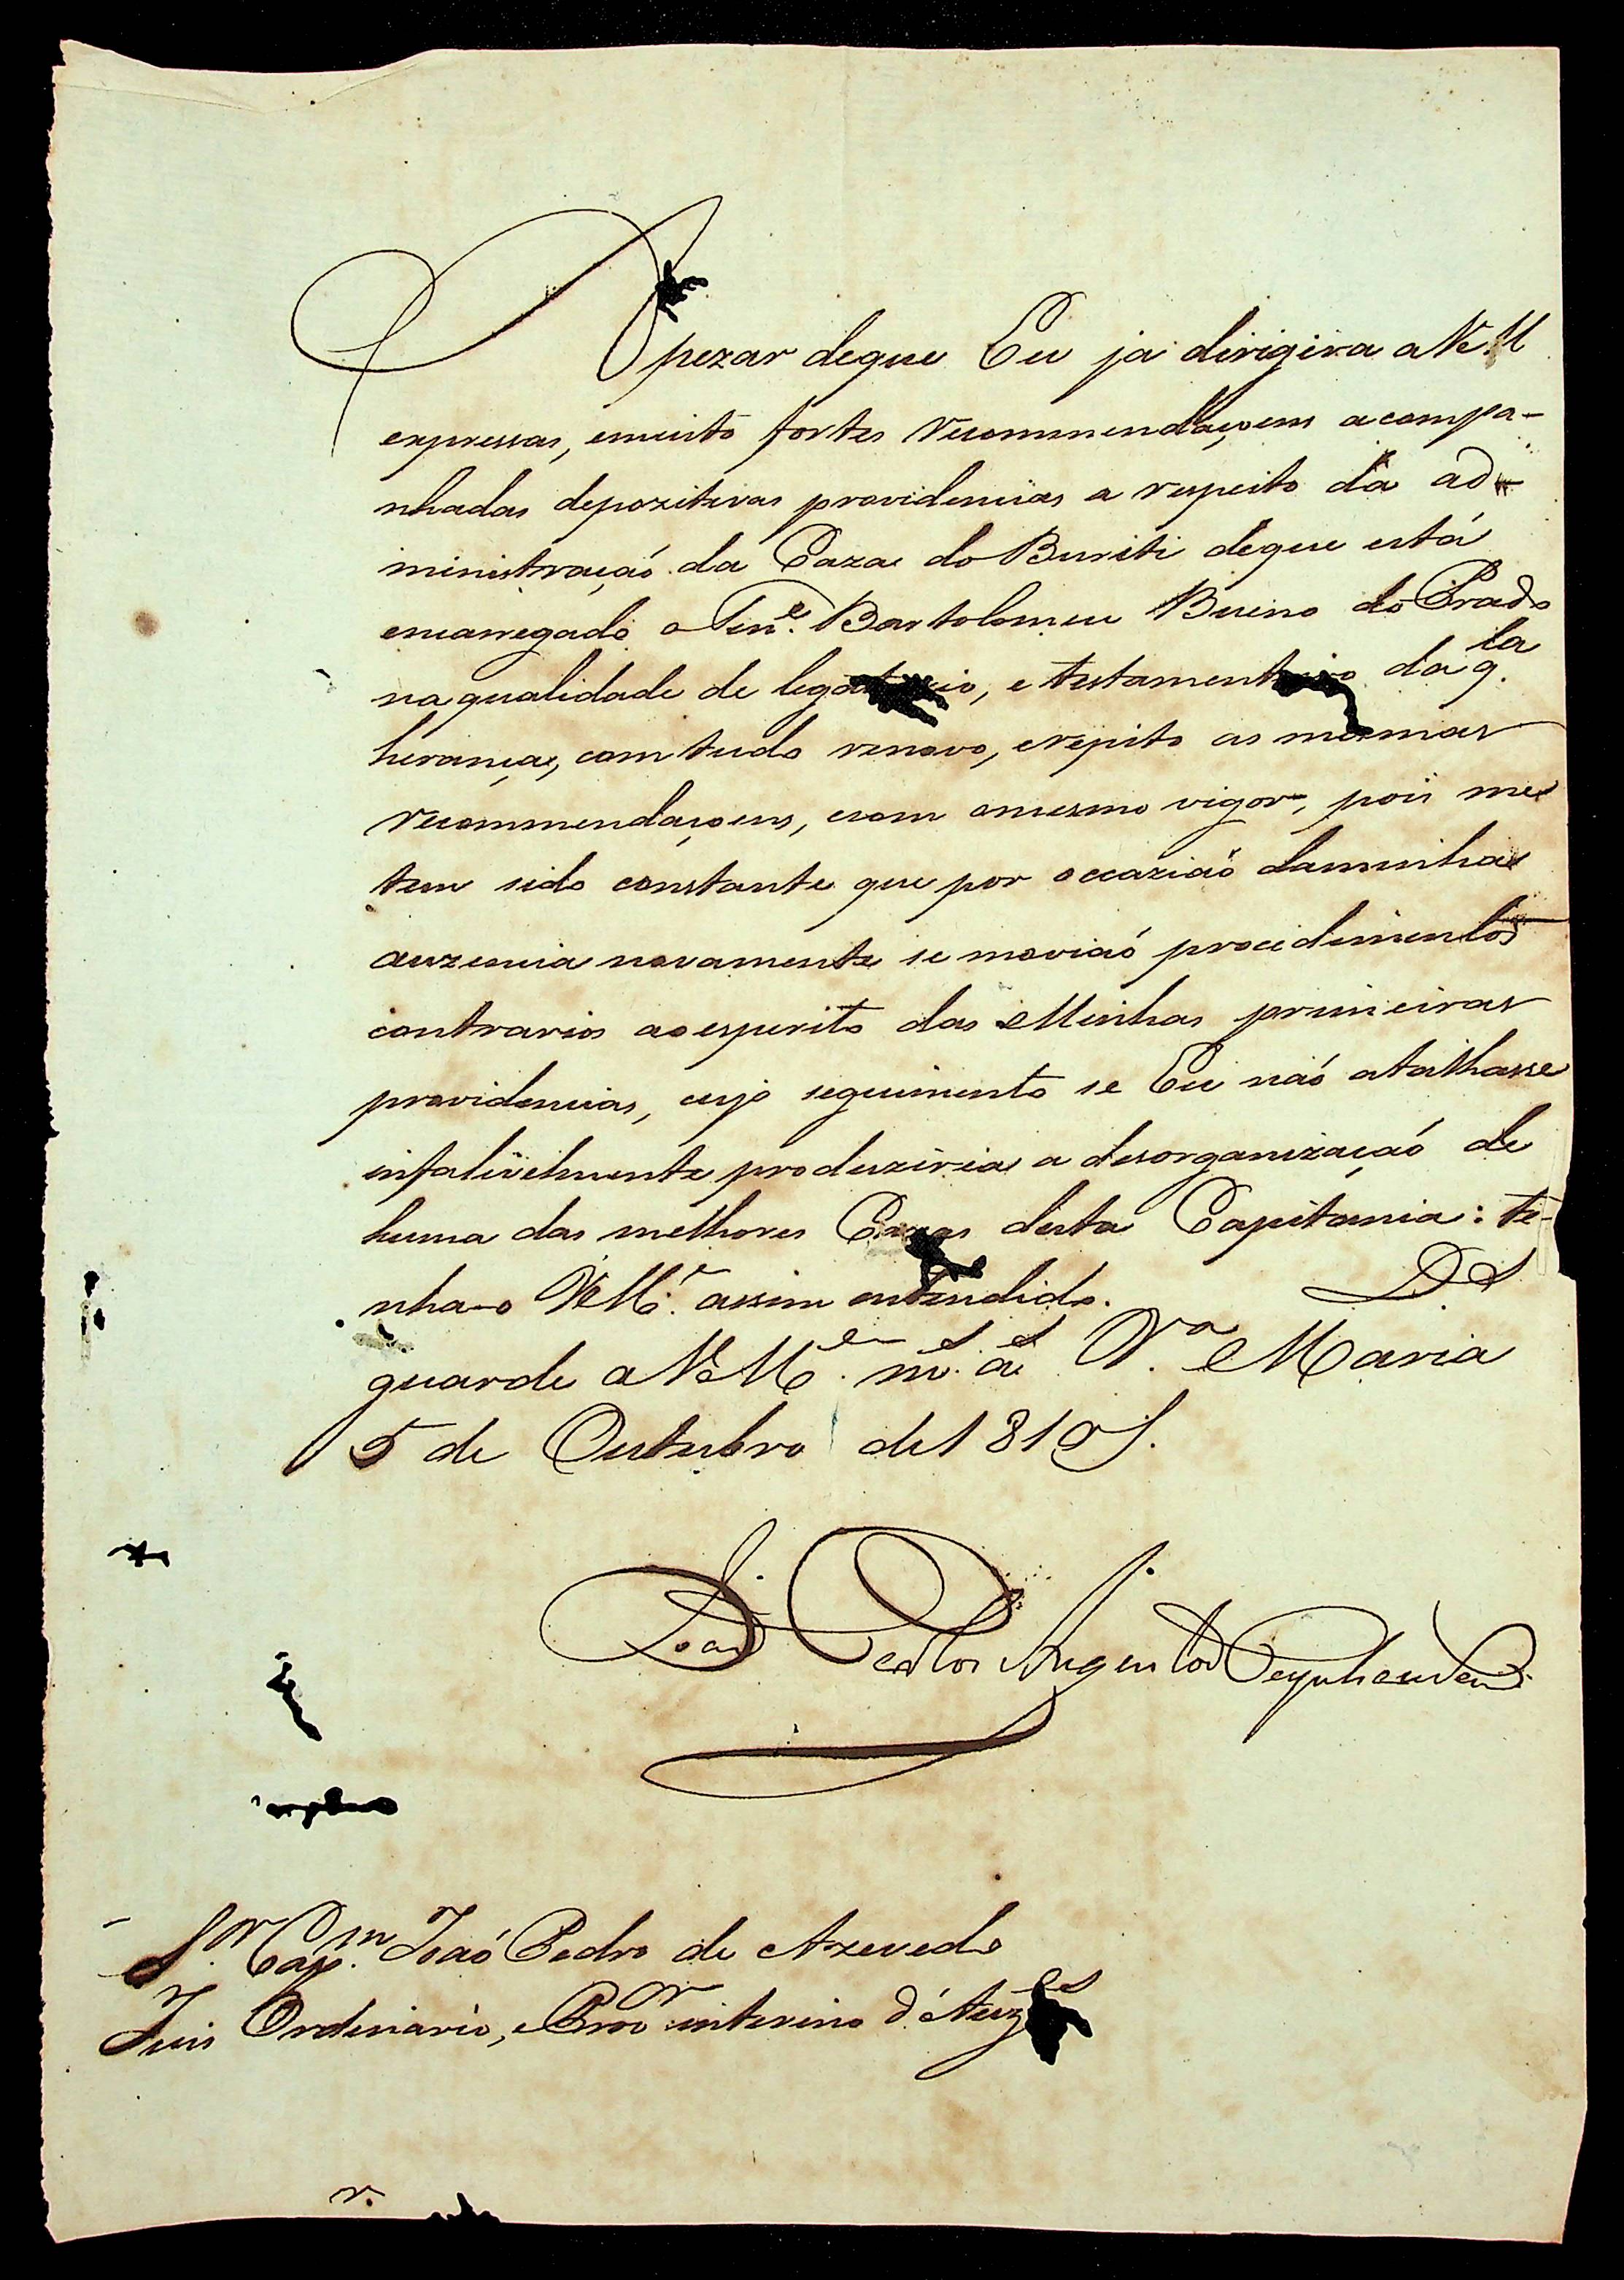 Apezar deque Eu ja dirigira a VM
expressas, emuito fortes recommendaçoens acompa-
nhadas depozitivas providencias a respeito da ad-
ministração da Caza do Buriti deque está
encarregado o Ten.e Bartolomeu Bueno do Prado
na qualidade de legatario, e testamenteiro daq.la
herança, comtudo renovo, erepito as mesmas
recommendaçoens, ecom omesmo vigor, pois me
tem sido constante que por occazião daminha
auzencia novamente se movião procedimentos
contrarios aoespirito das Minhas primeiras
providencias, cujo seguimento se Eu não atalhasse
infalivelmente produziria a desorganização de
huma das melhores Cazas desta Capitania: te-
nha-o VM.e assim entendido. Ds
guarde a VM.ce m.s a.s V.a Maria
5 de Outubro de 181
João Carlos Augusto d'Oeynhausen
S.r Cap.m João Pedro de Azevedo
Juis Ordinario, e Pro.or interino d'Auz.es